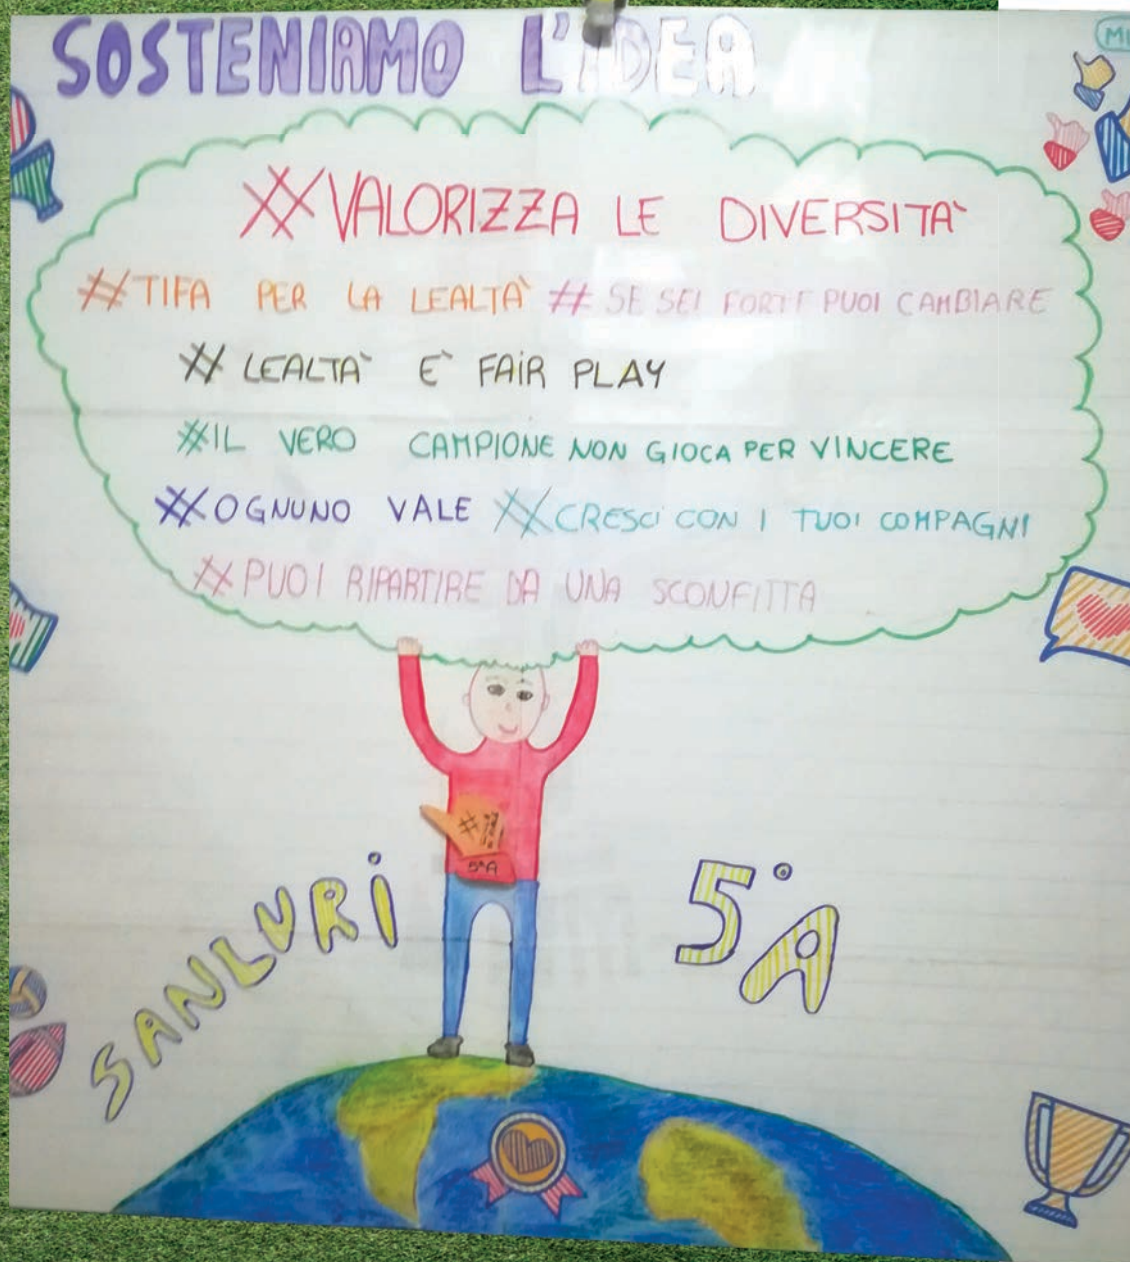 SOSTENIAMO L'IDEA
#VALORIZZA LE DIVERSITA`
#TIFA PER LA LEALTA` # SE SEI FORTE PUOI CAMBIARE
# LEALTA` E` FAIR PLAY
#IL VERO CAMPIONE NON GIOCA PER VINCERE
#OGNUNO VALE #CRESCI CON I TUOI COMPAGNI
#PUOI RIPARTIRE DA UNA SCONFITTA
5°A
SANLURI
5°A